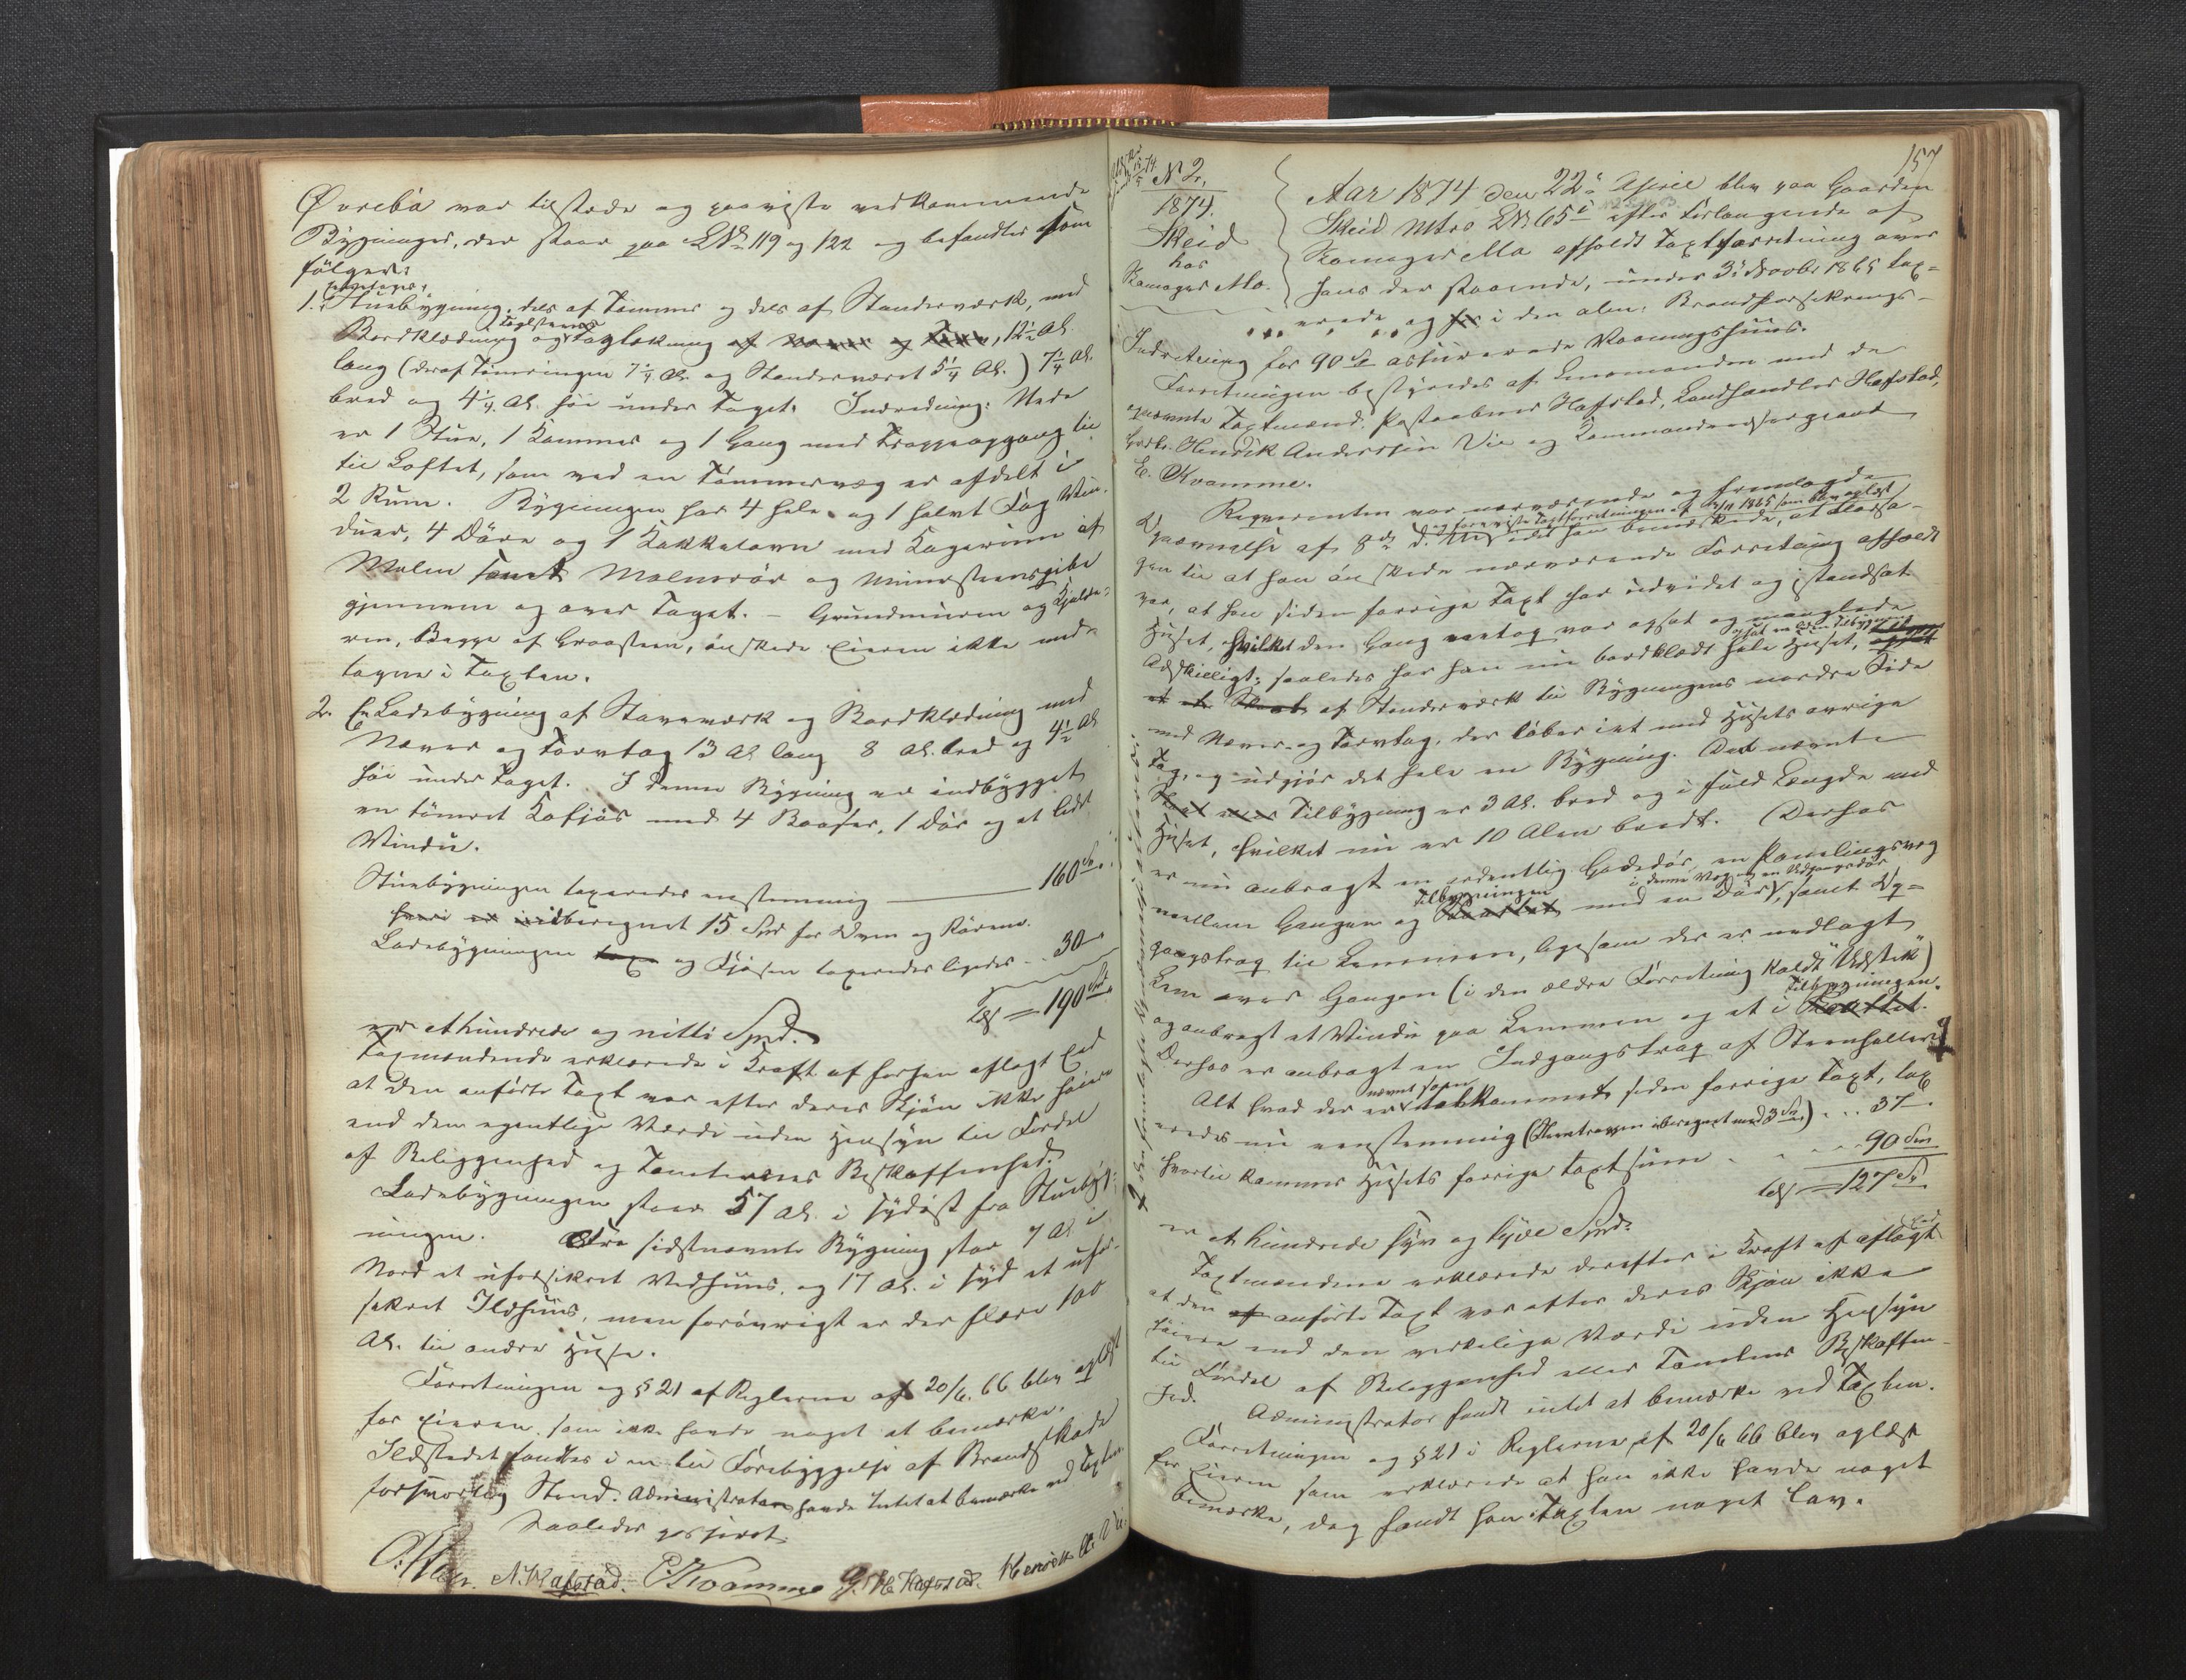 Øvrebø var tilstede og paaviste vedkommende
Bygninger, der staar paa LNr 119 og 122 og befandtes som
følger:
1. Stuebygning, dels af Tømmer og dels af Standerværk, med
Bordklædning og Taglækning af Næver og Torv, 12½ Al.
lang (deraf Tømringen 7¼ Al. og Standerværket 5¼ Al.) 7¼ Al.
bred og 4¼ Al. høi under Taget. Indredning: Nede
er 1 Stue, 1 Kammer og 1 Gang med Trappeopgang til
til Loftet, som ved en Tømmervæg er afdelt i
2 Rum. Bygningen har 4 hele og 1 halvt Fag Vin-
duer, 4 Døre og 1 Kakkelovn med Kogerum af
Malm samt Malmrør og Muurstenspibe
gjennem og over Taget. – Grundmuren og Kjelde-
ren, Begge af Graasteen, ønskede Eieren ikke med-
tagne i Taxten.
2. En Ladebygning af Stavværk og Bordklædning med
Næver og Torvtag 13 Al. lang 8 Al. bred og 4½ Al.
høi under Taget. I denne Bygning er indbygget
en tømret Kofjøs med 4 Baaser, 1 Dør og et lidet
Vindu.
Stuebygningen taxeredes enstemmig 160 Spd.
heri er iberegnet 15 Spd for Ovn og Rørene.
Ladebygningen og Fjøsen taxeredes ligedes 30
= 190 Spd.
er et hundrede og nitti Spd.
Taxmændende erklærede i Kraft af forhen aflagt Eed
at den anførte Taxt var efter deres Skjøn ikke høiere
end den egentlige Værdi uden Hensyn til Fordel
af Beliggenhed og Tomternes Beskaffenhed.
Ladebygningen staar 57 Al. i sydøst fra Stuebyg-
ningen. Fra sidstnævnte Bygning staar 7 Al. i
Nord et uforsikret Vedhuus, og 17 Al. i Syd et ufor-
sikret Ildhuus, men forøvrigt er der flere 100
Al. til andre Huse.
Forretningen og § 21 af Reglerne af 20/6. 66 blev oplæst
for Eieren som ikke havde noget at bemærke.
Ildstedet fandtes i en til Forebyggelse af Brandskade
forsvarlig Stand. Administrator havde Intet at bemærke ved Taxten
Saaledes passeret.
N. Hafstad. E. Kvamme Hafstad. Henrik A. Vie.
157
N 2.
1874.
Skeid
hos
Aar 1874 den 22de April blev paa Gaarden
Skeid Mtr. LNr 65 efter Forlangende af
Skomager Moe afholdt Taxtforretning over
hans der staaende, under 3die Novbr 1865 tax-
erede og i den alm: Brandforsikrings-
Indretning for 90 Spd assurerede Vaaningshuus.
Forretningen bestyredes af Lensmanden med de
opnævnte Taxtmænd: Postaabner Hafstad, Landhandler Hafstad,
Gaardbr. Henrik Anderssen Vie og Commandeersergeant
E. Kvamme.
Reqvirenten var nærværende og fremlagde
Opnævnelse af 8de d. M.
og foreviste Taxtforretningen af 3/11 1865 som blev oplæst
idet han bemærkede, at Aarsa-
gen til at han ønskede nærværende Forretning afholdt
var, at han siden forrige Taxt har udvidet og istandsat
Huset, hvilket den Gang nentop var opsat og manglede
Adskilligt; saaledes har han nu bordklædt hele Huset,
af Standerværk til Bygningens nordre Side
med Næver- og Torvtag, der løber i et med Husets øvrige
Tag, og udgjør det hele en Bygning. Det nævnte
Tilbygning er 3 Al. bred og i fuld Længde med
Huset, hvilket nu er 10 Alen bredt. Derhos
er nu anbragt en ordentlig Gadedør, en Panelingsvæg
i denne Væg og en Udgangsdør
mellem Gangen og Tilbygningen med en Dør, samt Op-
gangstrap til Lemmen, ligesom der er nedlagt
Lem over Gangen (i den ældre Forretning kaldt "Udstik")
og anbragt et Vindu paa Lemmen og et i Tilbygningen.
Derhos er anbragt en Indgangstrap af Steenheller.
Alt hvad der er nævnt som tilkommet siden forrige Taxt, tax-
eredes nu eenstemmig (Steentrappen iberegnet med 3 Spd) 37
hvortil kommer Husets forrige Taxtsum 90 Spd
= 127 Spd.
er et hundrede syv og tyve Spd.
Taxtmændene erklærede derefter i Kraft af aflagt Eed
at den anførte Taxt var efter deres Skjøn ikke
høiere end den virkelige Værdi uden Hensyn
til Fordel af Beliggenhed eller Tomtens Beskaffen-
hed. Administrator fandt intet at bemærke ved Taxten.
Forretningen og § 21 i Reglerne af 20/6 66 blev oplæst
for Eieren som erklærede at han ikke havde noget
bemærke, dog fandt han Taxten noget lav.